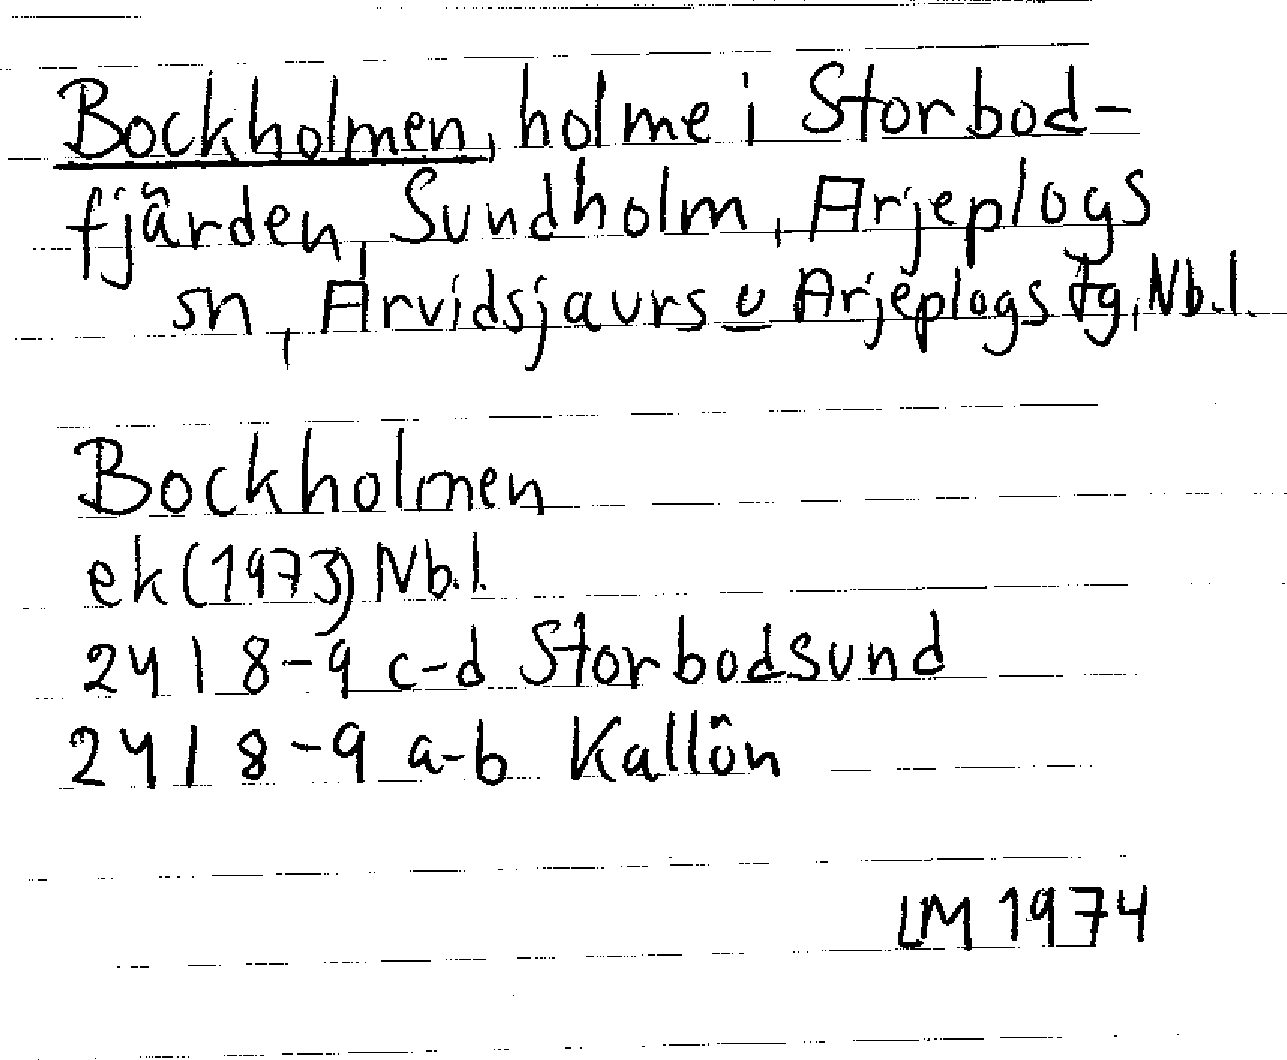 Bockholmen, holme i Storbod-
fjärden, Sundholm, Arjeplogs
sn, Arvidsjaurs o Arjeplogs tg, Nb.l.
Bockholmen
ek (1973) Nb.l.
24 I 8-9 c-d Storbodsund
24 I 8-9 a-b Kallön
LM 1974